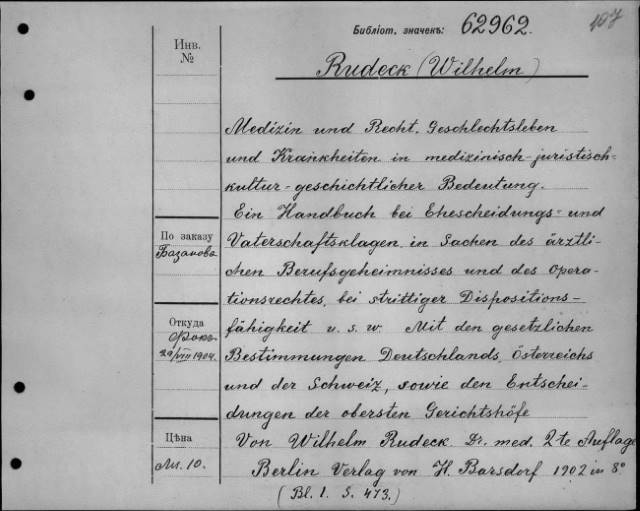 Библіот. значекъ: 62962. 107
Rudeck (Wilhelm)
Инв. №
Medizin und Recht. Geschlechtsleben
und Krankheiten in medizinisch-juristisch-
kultur-geschichtlicher Bedeutung.
Ein Handbuch bei Ehescheidungs- und
По заказу
Базанова
Vaterschaftsklagen in Sachen des ärztli-
chen Berufsgeheimnisses und des Opera-
tionsrechtes, bei strittiger Dispositions-
Откуда
29/VIII 1904.
fähigkeit u. s. w. Mit den gesetzlichen
Bestimmungen Deutschlands, Österreichs
und der Schweiz, sowie den Entschei-
dungen der obersten Gerichtshöfe
Цѣна
М. 10.
Von Wilhelm Rudeck Dr. med. 2te Auflage
Berlin Verlag von H. Barsdorf 1902 in 8°
(Bl. 1. S. 473.)